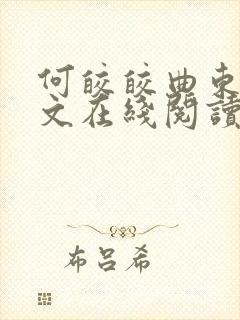 何皎皎曲東
文在綫閱讀
布呂希